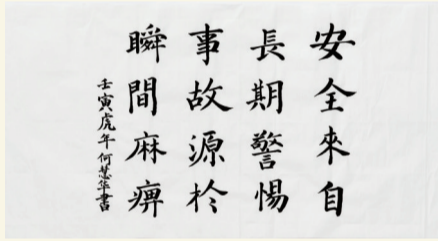 安全來自
長期警惕
事故源於
瞬間麻痹
壬寅虎年何慧華書